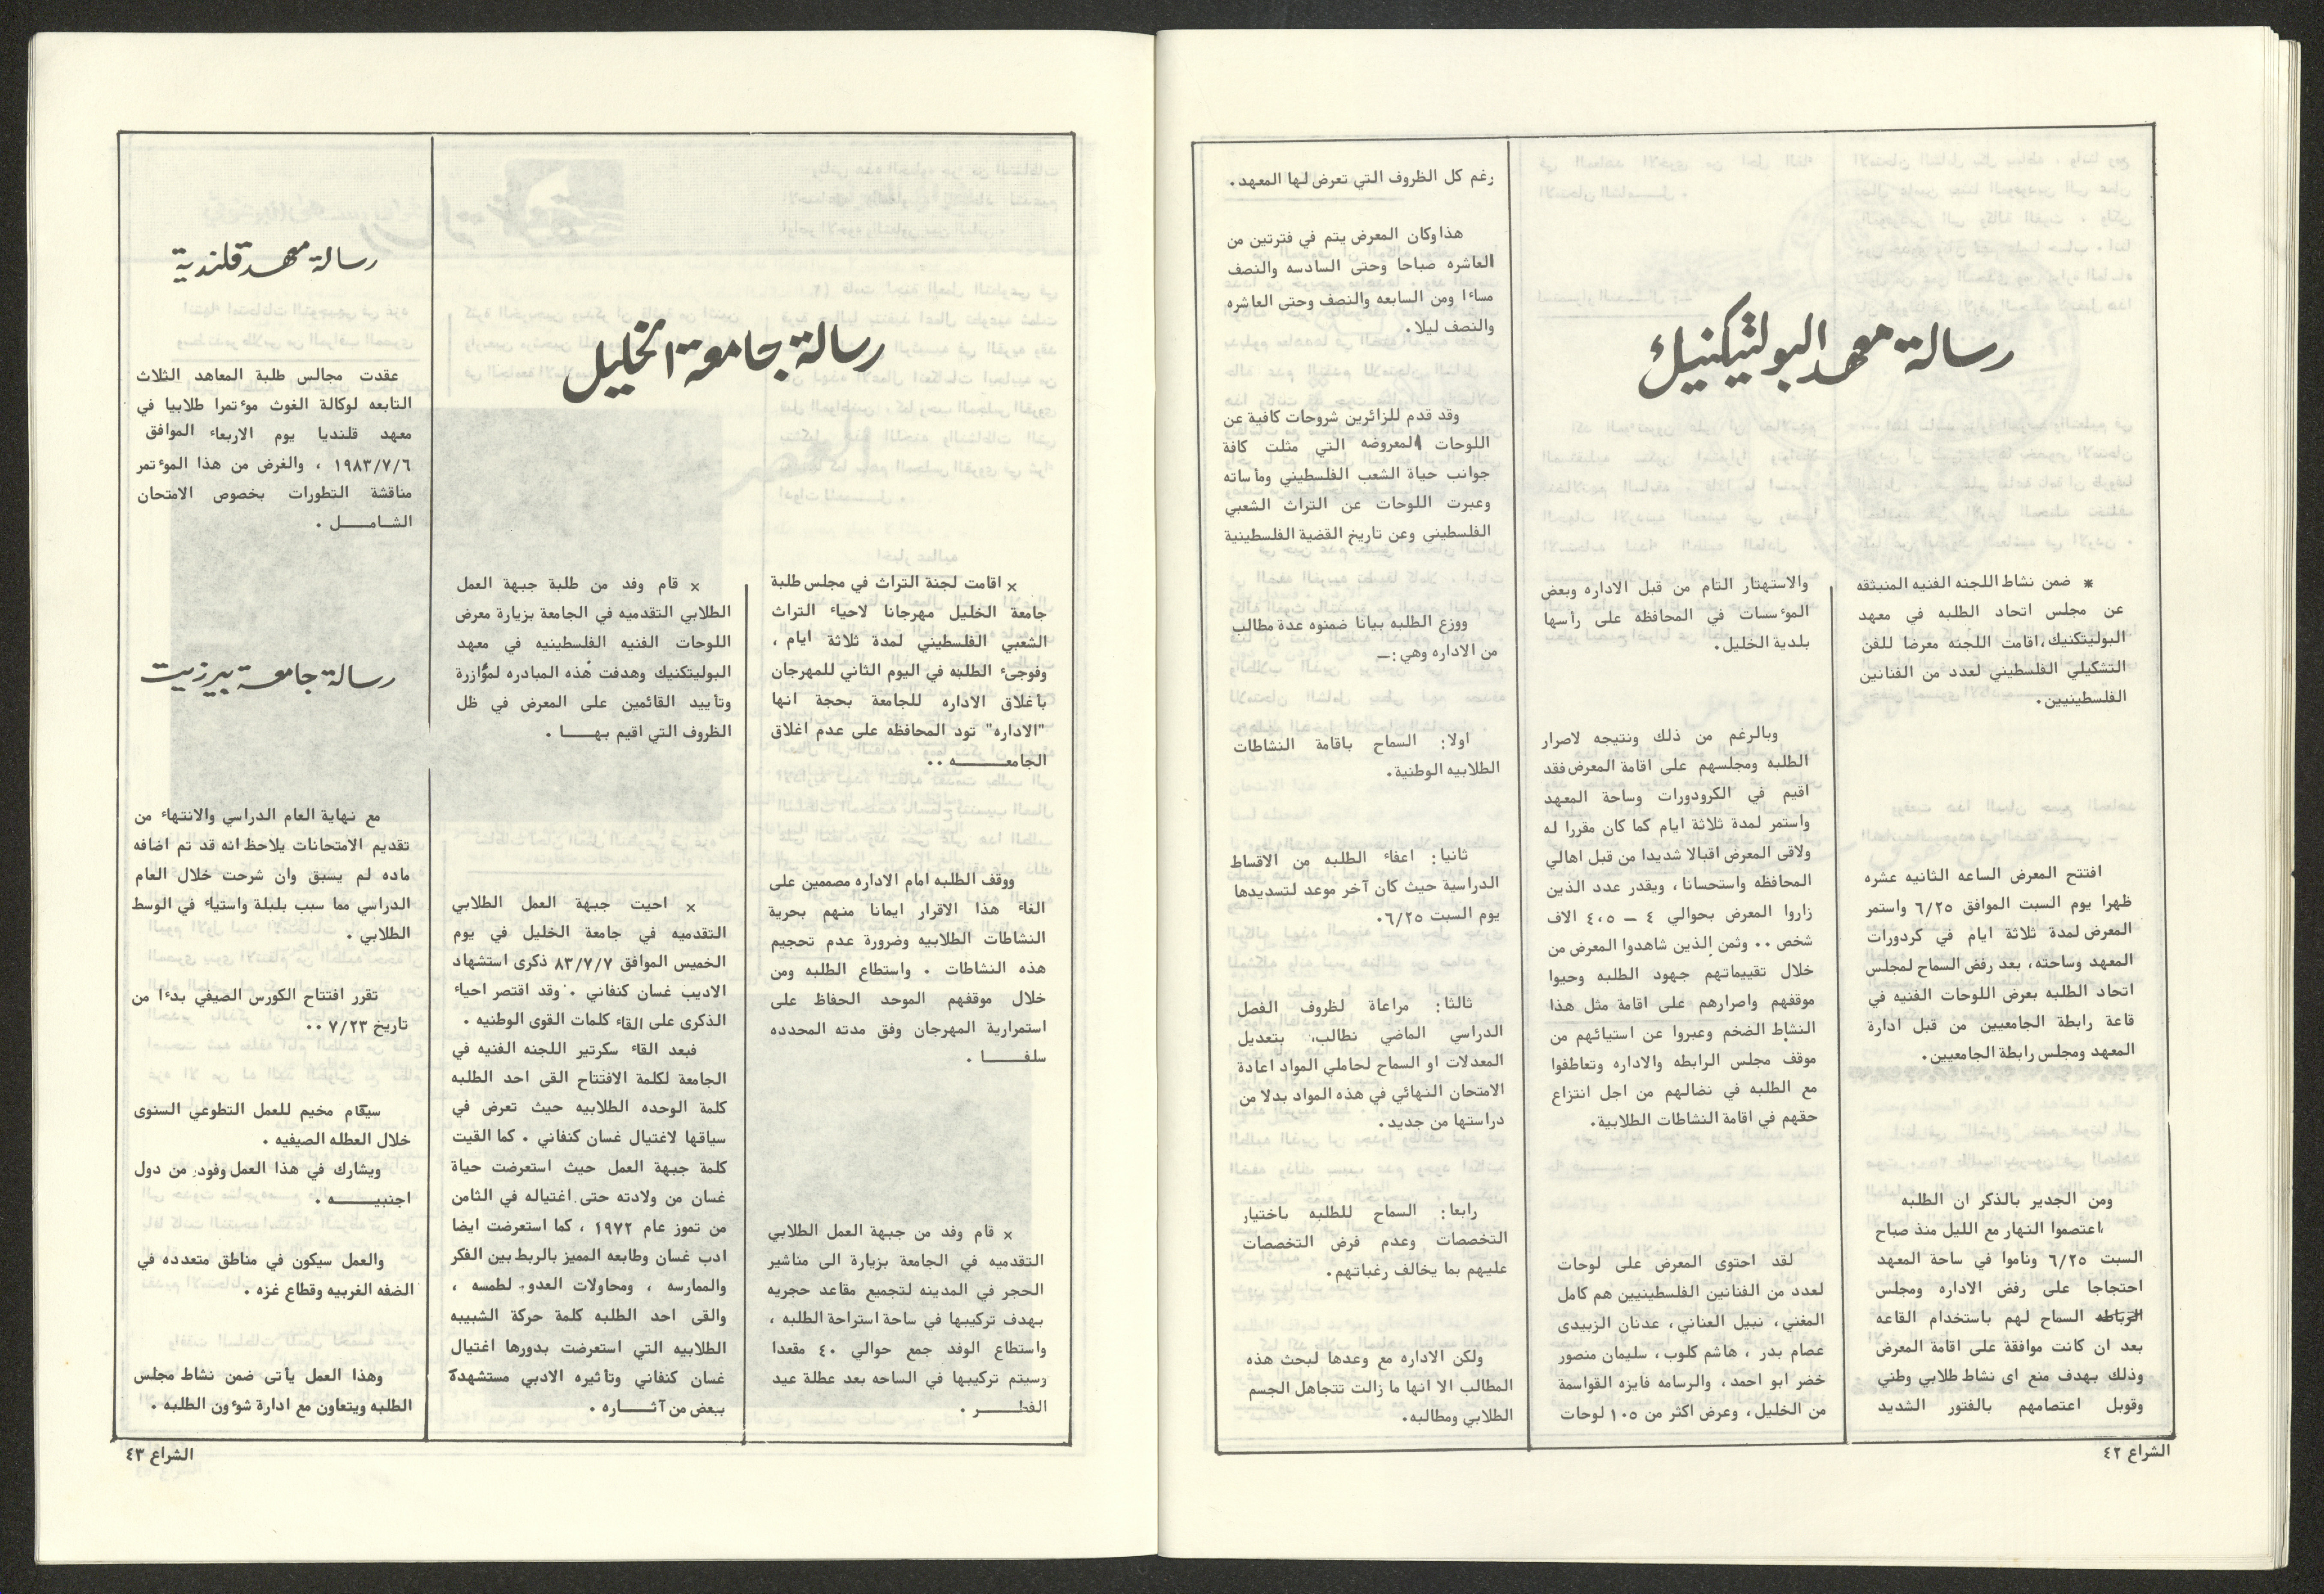 رسالة معهد البولتيكنيك
* ضمن نشاط اللجنه الفنيه المنبثقه
عن مجلس اتحاد الطلبه في معهد
البوليتكنيك،اقامت اللجنه معرضا للفن
التشكيلي الفلسطيني لعدد من الفنانين
الفلسطينيين.
افتتح المعرض الساعه الثانيه عشره
ظهرا يوم السبت الموافق ٦/٢٥ واستمر
المعرض لمدة ثلاثة ايام في كردورات
المعهد وساحته، بعد رفض السماح لمجلس
اتحاد الطلبه بعرض اللوحات الفنيه في
قاعة رابطة الجامعيين من قبل ادارة
المعهد ومجلس رابطة الجامعيين.
ومن الجدير بالذكر ان الطلبه
اعتصموا النهار مع الليل منذ صباح
السبت ٦/٢٥ وناموا في ساحة المعهد
احتجاجا على رفض الاداره ومجلس
الرباطه السماح لهم باستخدام القاعه
بعد ان كانت موافقة على اقامة المعرض
وذلك بهدف منع اى نشاط طلابي وطني
وقوبل اعتصامهم بالفتور الشديد
والاستهتار التام من قبل الاداره وبعض
الموءسسات في المحافظه على رأسها
بلدية الخليل.
وبالرغم من ذلك ونتيجه لاصرار
الطلبه ومجلسهم على اقامة المعرض فقد
اقيم في الكرودورات وساحة المعهد
واستمر لمدة ثلاثة ايام كما كان مقررا له
ولاقى المعرض اقبالا شديدا من قبل اهالي
المحافظه واستحسانا، ويقدر عدد الذين
زاروا المعرض بحوالي ٤ – ٤،٥ الاف
شخص .. وثمن الذين شاهدوا المعرض من
خلال تقييماتهم جهود الطلبه وحيوا
موقفهم واصرارهم على اقامة مثل هذا
النشاط الضخم وعبروا عن استيائهم من
موقف مجلس الرابطه والاداره وتعاطفوا
مع الطلبه في نضالهم من اجل انتزاع
حقهم في اقامة النشاطات الطلابية.
لقد احتوى المعرض على لوحات
لعدد من الفنانين الفلسطينيين هم كامل
المغني، نبيل العناني، عدنان الزبيدى
عصام بدر ، هاشم كلوب، سليمان منصور
خضر ابو احمد، والرسامه فايزه القواسمة
من الخليل، وعرض اكثر من ١٠٥ لوحات
رغم كل الظروف التي تعرض لها المعهد.
هذا وكان المعرض يتم في فترتين من
العاشره صباحا وحتى السادسه والنصف
مساءا ومن السابعه والنصف وحتى العاشره
والنصف ليلا.
وقد قدم للزائرين شروحات كافية عن
اللوحات المعروضه التي مثلت كافة
جوانب حياة الشعب الفلسطيني ومأساته
وعبرت اللوحات عن التراث الشعبي
الفلسطيني وعن تاريخ القضية الفلسطينية
ووزع الطلبه بيانا ضمنوه عدة مطالب
من الاداره وهي:–
اولا: السماح باقامة النشاطات
الطلابيه الوطنية.
ثانيا: اعفاء الطلبه من الاقساط
الدراسية حيث كان آخر موعد لتسديدها
يوم السبت ٦/٢٥.
ثالثا: مراعاة لظروف الفصل
الدراسي الماضي نطالب، بتعديل
المعدلات او السماح لحاملي المواد اعادة
الامتحان النهائي في هذه المواد بدلا من
دراستها من جديد.
رابعا: السماح للطلبه باختيار
التخصصات وعدم فرض التخصصات
عليهم بما يخالف رغباتهم.
ولكن الاداره مع وعدها لبحث هذه
المطالب الا انها ما زالت تتجاهل الجسم
الطلابي ومطالبه.
الشراع ٤٢
رسالة جامعة الخليل
× اقامت لجنة التراث في مجلس طلبة
جامعة الخليل مهرجانا لاحياء التراث
الشعبي الفلسطيني لمدة ثلاثة ايام ،
وفوجىء الطلبه في اليوم الثاني للمهرجان
بأغلاق الاداره للجامعة بحجة انها
"الاداره" تود المحافظه على عدم اغلاق
الجامعـــــه ..
ووقف الطلبه امام الاداره مصممين على
الغاء هذا الاقرار ايمانا منهم بحرية
النشاطات الطلابيه وضرورة عدم تحجيم
هذه النشاطات . واستطاع الطلبه ومن
خلال موقفهم الموحد الحفاظ على
استمرارية المهرجان وفق مدته المحدده
سلفـــا .
× قام وفد من جبهة العمل الطلابي
التقدميه في الجامعة بزيارة الى مناشير
الحجر في المدينه لتجميع مقاعد حجريه
بهدف تركيبها في ساحة استراحة الطلبه ،
واستطاع الوفد جمع حوالي ٤٠ مقعدا
رسيتم تركيبها في الساحه بعد عطلة عيد
الفطـــر .
× قام وفد من طلبة جبهة العمل
الطلابي التقدميه في الجامعة بزيارة معرض
اللوحات الفنيه الفلسطينيه في معهد
البوليتكنيك وهدفت هذه المبادره لموٴازرة
وتأييد القائمين على المعرض في ظل
الظروف التي اقيم بهـــا .
× احيت جبهة العمل الطلابي
التقدميه في جامعة الخليل في يوم
الخميس الموافق ٨٣/٧/٧ ذكرى استشهاد
الاديب غسان كنفاني . وقد اقتصر احياء
الذكرى على القاء كلمات القوى الوطنيه .
فبعد القاء سكرتير اللجنه الفنيه في
الجامعة لكلمة الافتتاح القى احد الطلبه
كلمة الوحده الطلابيه حيث تعرض في
سياقها لاغتيال غسان كنفاني . كما القيت
كلمة جبهة العمل حيث استعرضت حياة
غسان من ولادته حتى اغتياله في الثامن
من تموز عام ١٩٧٢ ، كما استعرضت ايضا
ادب غسان وطابعه المميز بالربط بين الفكر
والممارسه ، ومحاولات العدو لطمسه ،
والقى احد الطلبه كلمة حركة الشبيبه
الطلابيه التي استعرضت بدورها اغتيال
غسان كنفاني وتأثيره الادبي مستشهدة
ببعض من آثـــاره .
رسالة معهد قلندية
عقدت مجالس طلبة المعاهد الثلاث
التابعه لوكالة الغوث موءتمرا طلابيا في
معهد قلنديا يوم الاربعاء الموافق
١٩٨٣/٧/٦ ، والغرض من هذا الموءتمر
مناقشة التطورات بخصوص الامتحان
الشامـــل .
رسالة جامعة بيرزيت
مع نهاية العام الدراسي والانتهاء من
تقديم الامتحانات يلاحظ انه قد تم اضافه
ماده لم يسبق وان شرحت خلال العام
الدراسي مما سبب بلبلة واستياء في الوسط
الطلابي .
تقرر افتتاح الكورس الصيفي بدءا من
تاريخ ٧/٢٣ ..
سيقام مخيم للعمل التطوعي السنوى
خلال العطله الصيفيه .
ويشارك في هذا العمل وفود من دول
اجنبيـــــه .
والعمل سيكون في مناطق متعدده في
الضفه الغربيه وقطاع غزه .
وهذا العمل يأتى ضمن نشاط مجلس
الطلبه ويتعاون مع ادارة شوءون الطلبه .
الشراع ٤٣